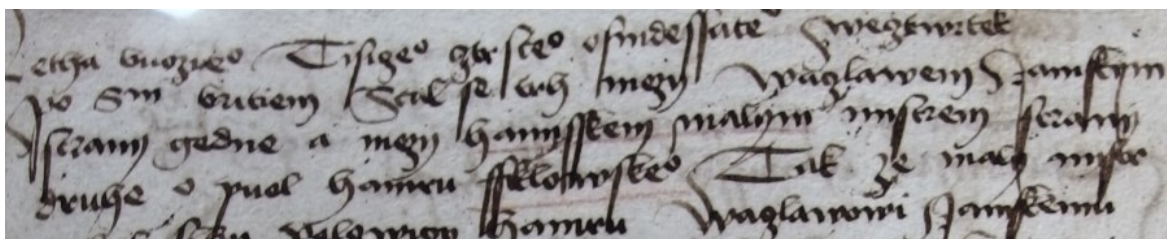 Letha buozieo Tisigeo cztrsteo osmdessateo Wegtwrtek
po Swn britiem Stal se trh mezy Waczlawem Jamskym
s strany gedne a mezy hanusskem malym mistrem strany
druhe o puol hamru ssklowskeo Tak ze maly mistr
hamru Waczlawowi Jamskemu